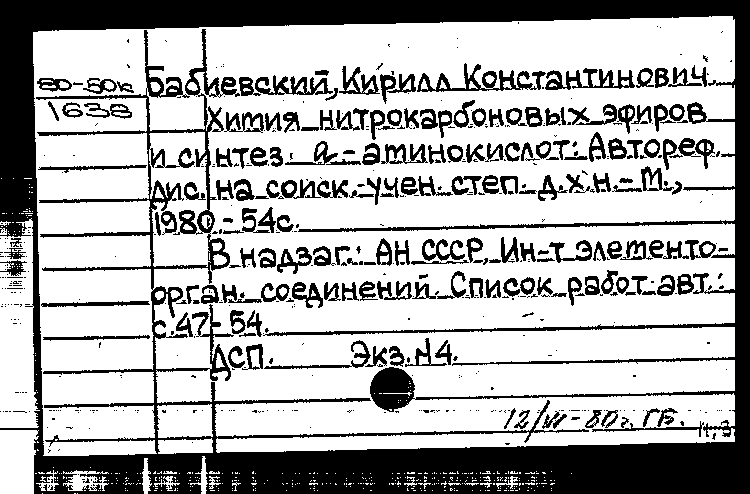 80-50к Бабиевский, Кирилл Константинович
1638 Химия нитрокарбоновых эфиров
и синтез α-аминокислот: Автореф.
дис. на соиск. учен. степ. д.х.н. - М.,
1980 - 54с.
В надзаг.: АН СССР, Ин-т элементо-
орган. соединений. Список работ авт.:
с.47-54.
ДСП. Экз.N4.
12/VI-80г. ГБ.